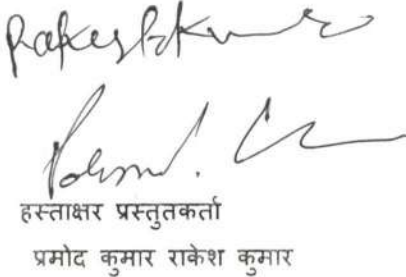 Rakesh Kumar
हस्ताक्षर प्रस्तुतकर्ता
प्रमोद कुमार राकेश कुमार